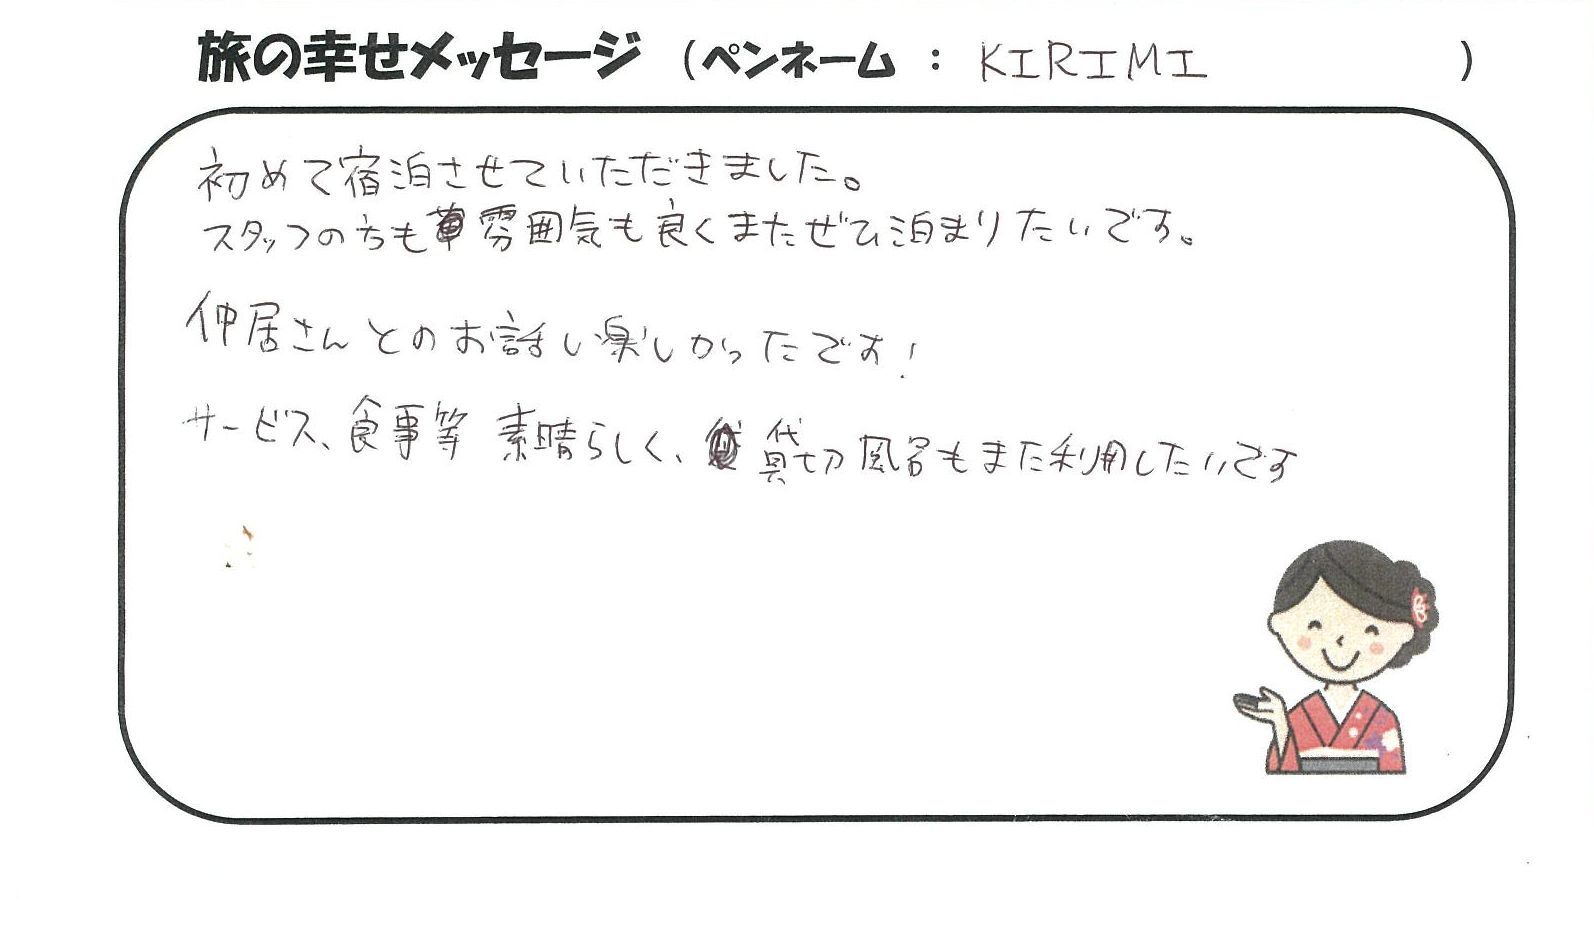 旅の幸せメッセージ (ペンネーム : KIRIMI )
初めて宿泊させていただきました。
スタッフの方も雰囲気も良くまたぜひ泊まりたいです。
仲居さんとのお話し楽しかったです!
サービス、食事等 素晴らしく、貸切風呂もまた利用したいです